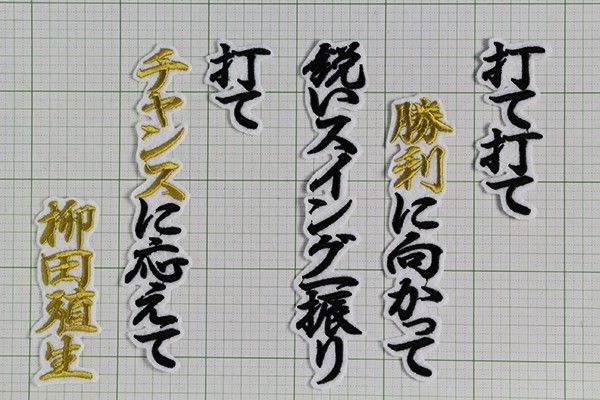 打て打て
勝利に向かって
鋭いスイング一振り
打て
チャンスに応えて
柳田殖生